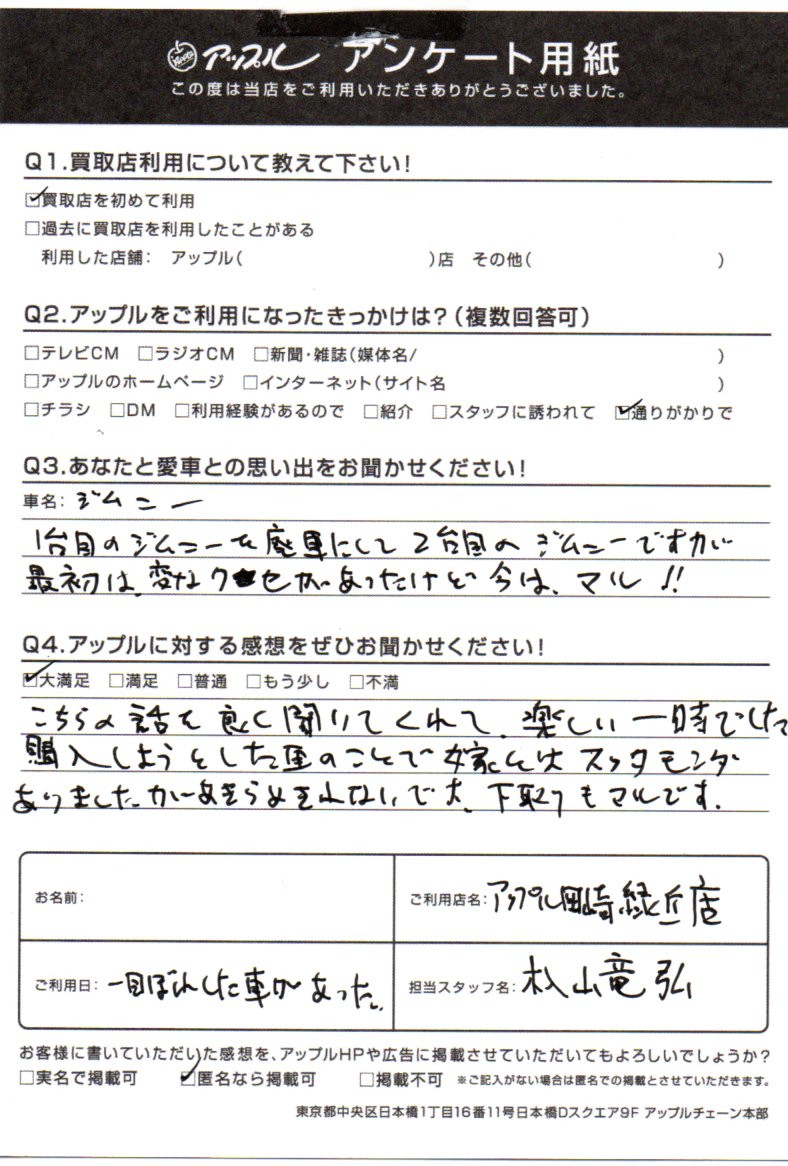 アップル アンケート用紙
この度は当店をご利用いただきありがとうございました。
Q1.買取店利用について教えて下さい!
☑買取店を初めて利用
□過去に買取店を利用したことがある
利用した店舗: アップル( )店 その他( )
Q2.アップルをご利用になったきっかけは?(複数回答可)
□テレビCM □ラジオCM □新聞・雑誌(媒体名/ )
□アップルのホームページ □インターネット(サイト名 )
□チラシ □DM □利用経験があるので □紹介 □スタッフに誘われて ☑通りがかりで
Q3.あなたと愛車との思い出をお聞かせください!
車名:ジムニー
1台目のジムニーを廃車にして2台目のジムニーですが
最初は、変なクセがあったけど今は、マル!!
Q4.アップルに対する感想をぜひお聞かせください!
☑大満足 □満足 □普通 □もう少し □不満
こちらの話を良く聞いてくれて、楽しい一時でした
購入しようとした車のことで嫁とはスッタモンダ
ありましたがあきらめきれないです、下取りもマルです.
お名前:
ご利用店名:アップル岡崎緑丘店
ご利用日:一目ぼれした車があった。
担当スタッフ名:杁山竜弘
お客様に書いていただいた感想を、アップルHPや広告に掲載させていただいてもよろしいでしょうか?
□実名で掲載可 ☑匿名なら掲載可 □掲載不可 ※ご記入がない場合は匿名での掲載とさせていただきます。
東京都中央区日本橋1丁目16番11号日本橋Dスクエア9F アップルチェーン本部